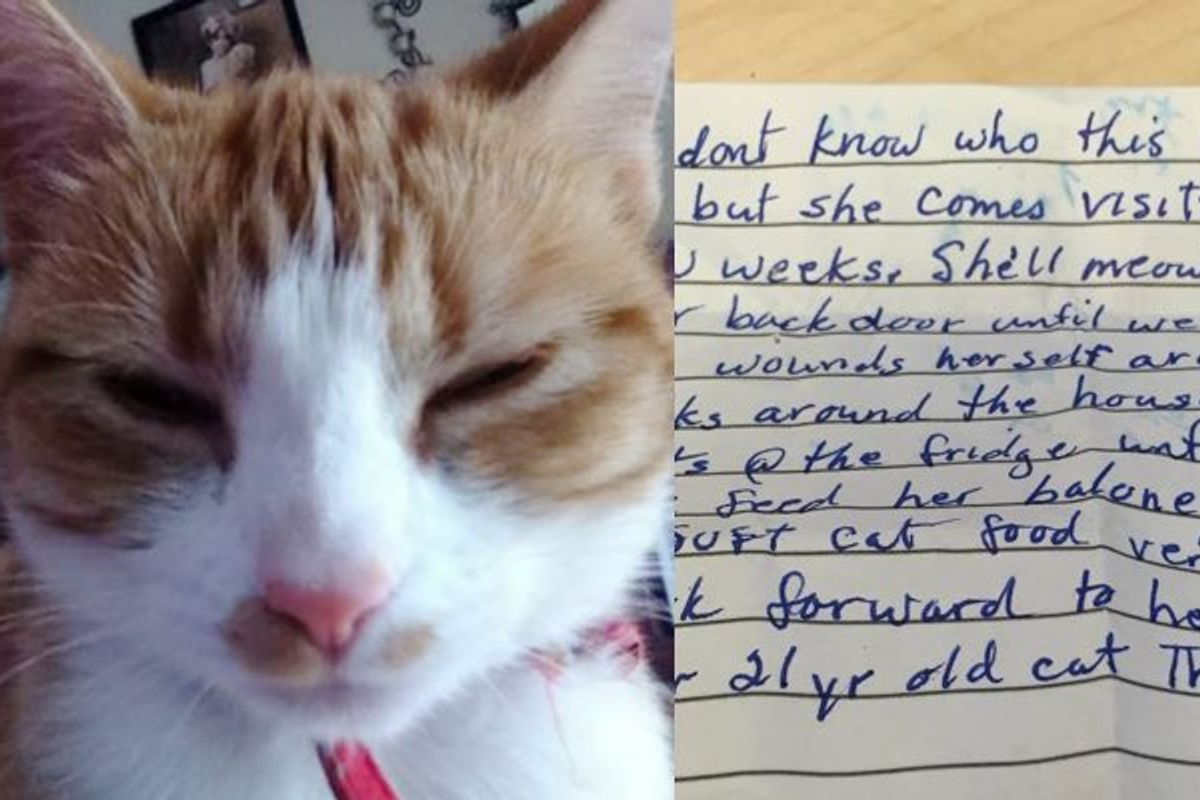 dont know who this
but she comes visit
weeks. She'll meow
back door until we
wounds herself
around the hous
@ the fridge unt
feed her balone
cat food ver
forward to he
21 yr old cat Th